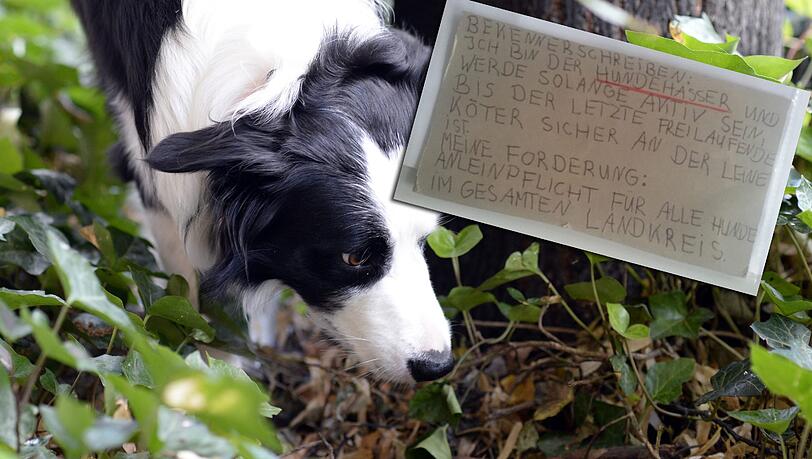 BEKENNERSCHREIBEN:
ICH BIN DER HUNDEHASSER UND
WERDE SOLANGE AKTIV SEIN,
BIS DER LETZTE FREILAUFENDE
KÖTER SICHER AN DER LEINE
IST.
MEINE FORDERUNG:
ANLEINPFLICHT FÜR ALLE HUNDE
IM GESAMTEN LANDKREIS.